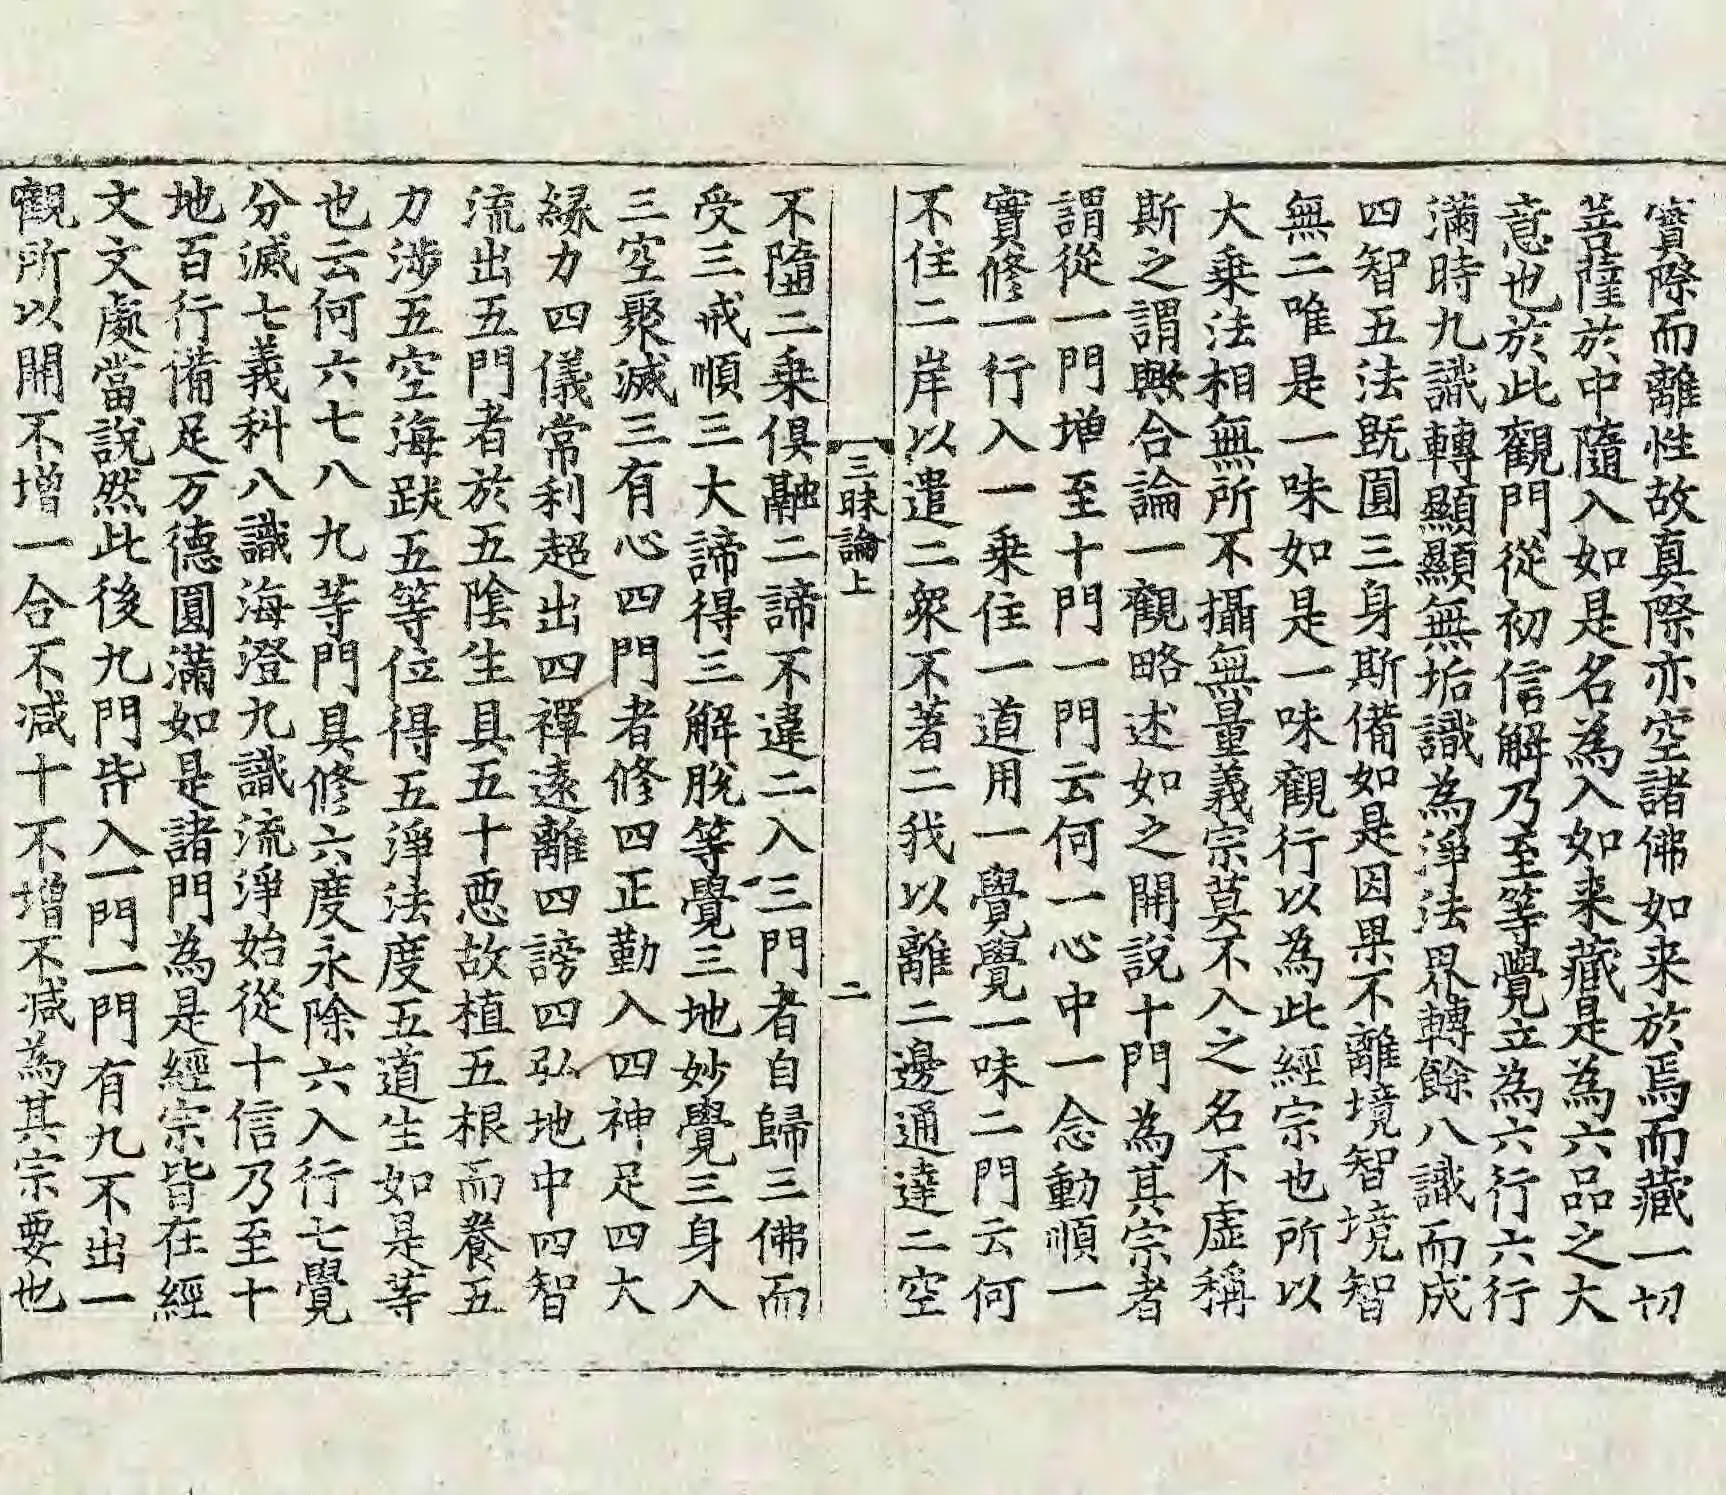 實際而離性故真際亦空諸佛如来於焉而藏一切
菩薩於中隨入如是名為入如来藏是為六品之大
意也於此觀門從初信解乃至等覺立為六行六行
滿時九識轉顯顯無垢識為淨法界轉餘八識而成
四智五法既圓三身斯備如是因果不離境智境智
無二唯是一味如是一味觀行以為此經宗也所以
大乗法相無所不攝無量義宗莫不入之名不虛稱
斯之謂歟合論一觀略述如之開說十門為其宗者
謂從一門增至十門一門云何一心中一念動順一
實修一行入一乗住一道用一覺覺一味二門云何
不住二岸以遣二衆不著二我以離二邊通達二空
三昧論上 二
不隨二乗俱融二諦不違二入三門者自歸三佛而
受三戒順三大諦得三解脫等覺三地妙覺三身入
三空聚滅三有心四門者修四正勤入四神足四大
緣力四儀常利超出四禪遠離四謗四弘地中四智
流出五門者於五陰生具五十惡故植五根而養五
力涉五空海跋五等位得五淨法度五道生如是等
也云何六七八九等門具修六度永除六入行七覺
分滅七義科八識海澄九識流淨始從十信乃至十
地百行備足万德圓滿如是諸門為是經宗皆在經
文文處當說然此後九門皆入一門一門有九不出一
觀所以開不增一合不减十不增不减為其宗要也